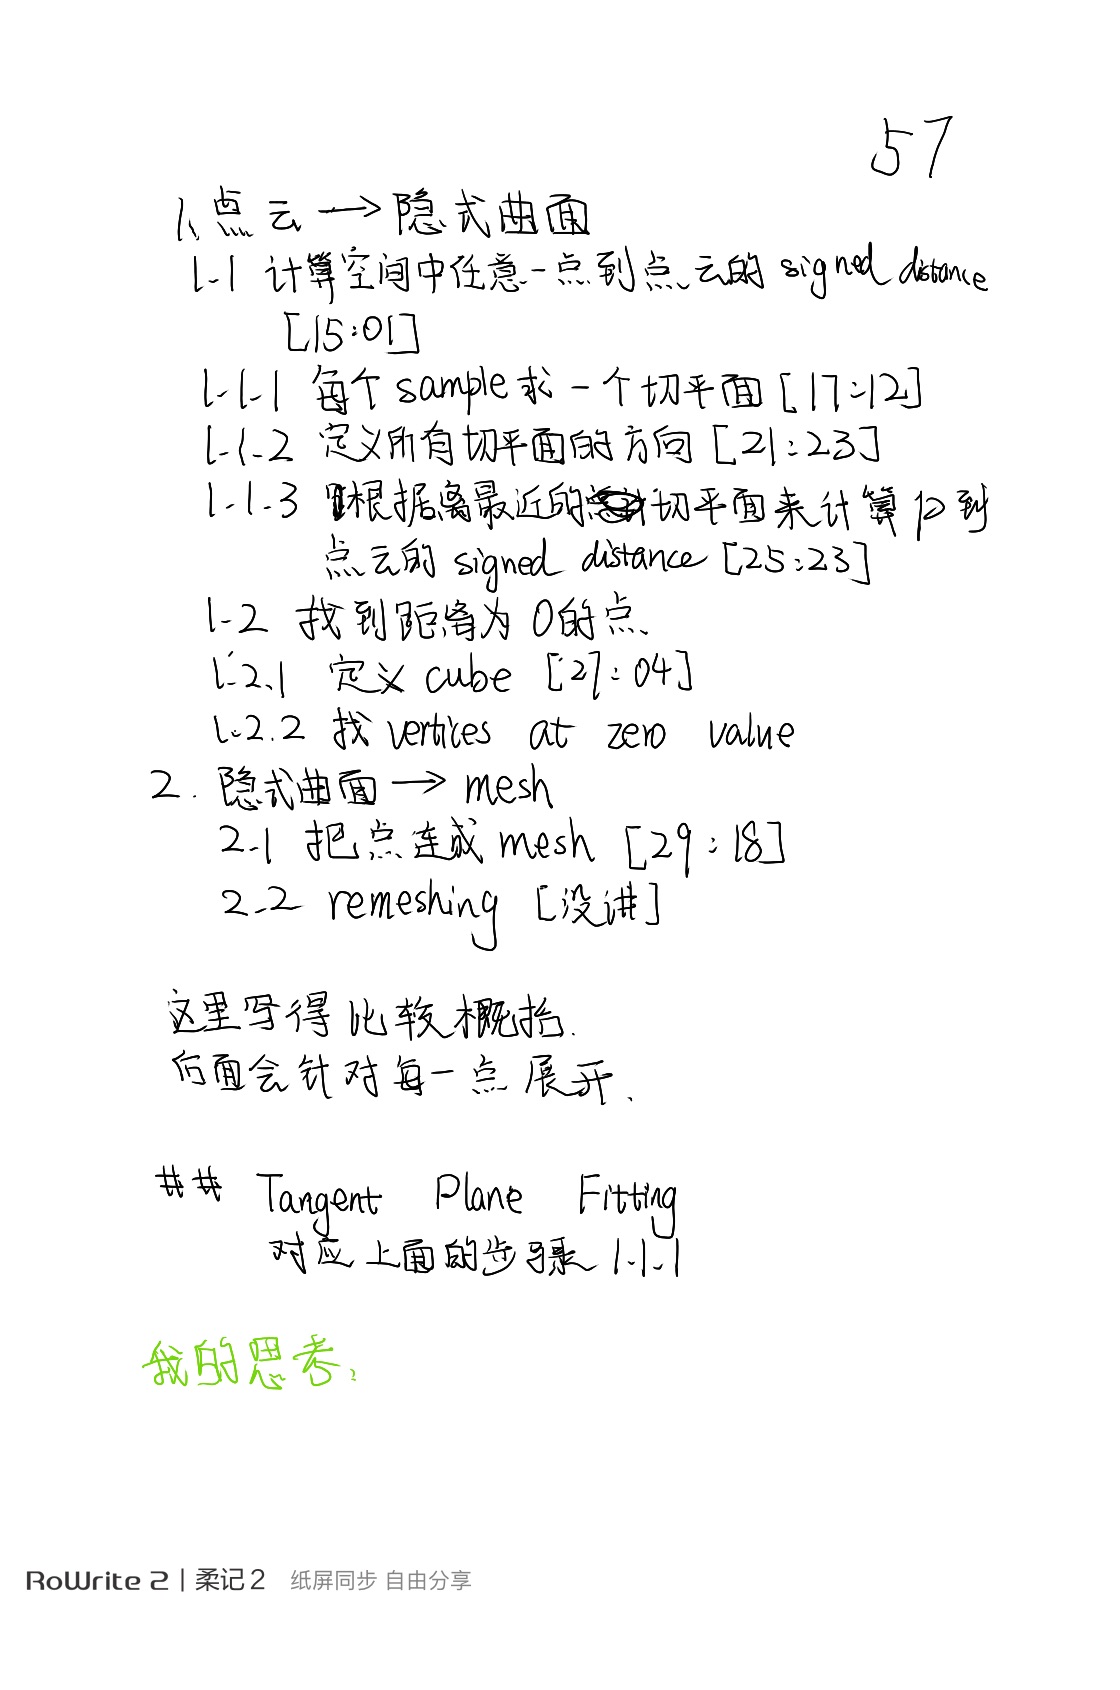 57
1. 点云 → 隐式曲面
1-1 计算空间中任意一点到点云的 signed distance
[15:01]
1-1-1 每个 sample 求一个切平面 [17:12]
1-1-2 定义所有切平面的方向 [21:23]
1-1-3 根据离最近的切平面来计算 p 到
点云的 signed distance [25:23]
1-2 找到距离为 0 的点、
1.2.1 定义 cube [27:04]
1.2.2 找 vertices at zero value
2. 隐式曲面 → mesh
2-1 把点连成 mesh [29:18]
2-2 remeshing [没讲]
这里写得比较概括.
后面会针对每一点展开、
## Tangent Plane Fitting
对应上面的步骤 1-1-1
我的思考:
RoWrite 2 | 柔记 2 纸屏同步 自由分享